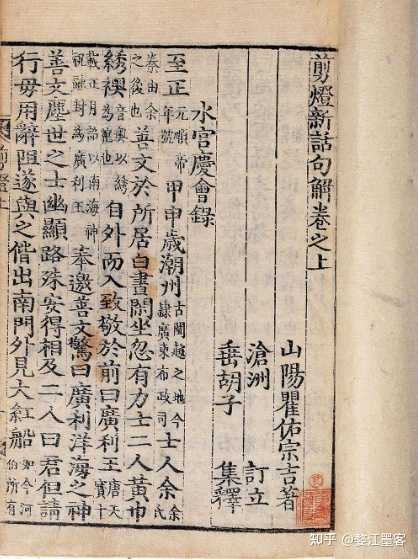 剪燈新話句解卷之上
山陽瞿佑宗吉著
滄洲 訂立
垂胡子 集釋
水宮慶會錄
至正元順帝年號甲申歲潮州古閩越之地今隸廣東布政司士人余余氏
秦由余之後也善文於所居白晝閑坐忽有力士二人黃巾
綉襖音奧以綉為也自外而入致敬於前曰廣利王唐天寶十
載正月詔以南海神祝融封為廣利王奉邀善文驚曰廣利洋海之神
善文塵世之士幽顯路殊安得相及二人曰君但請
行毋用辭阻遂與之偕出南門外見大紅船如今河伯所有
知乎 @婺江墨客